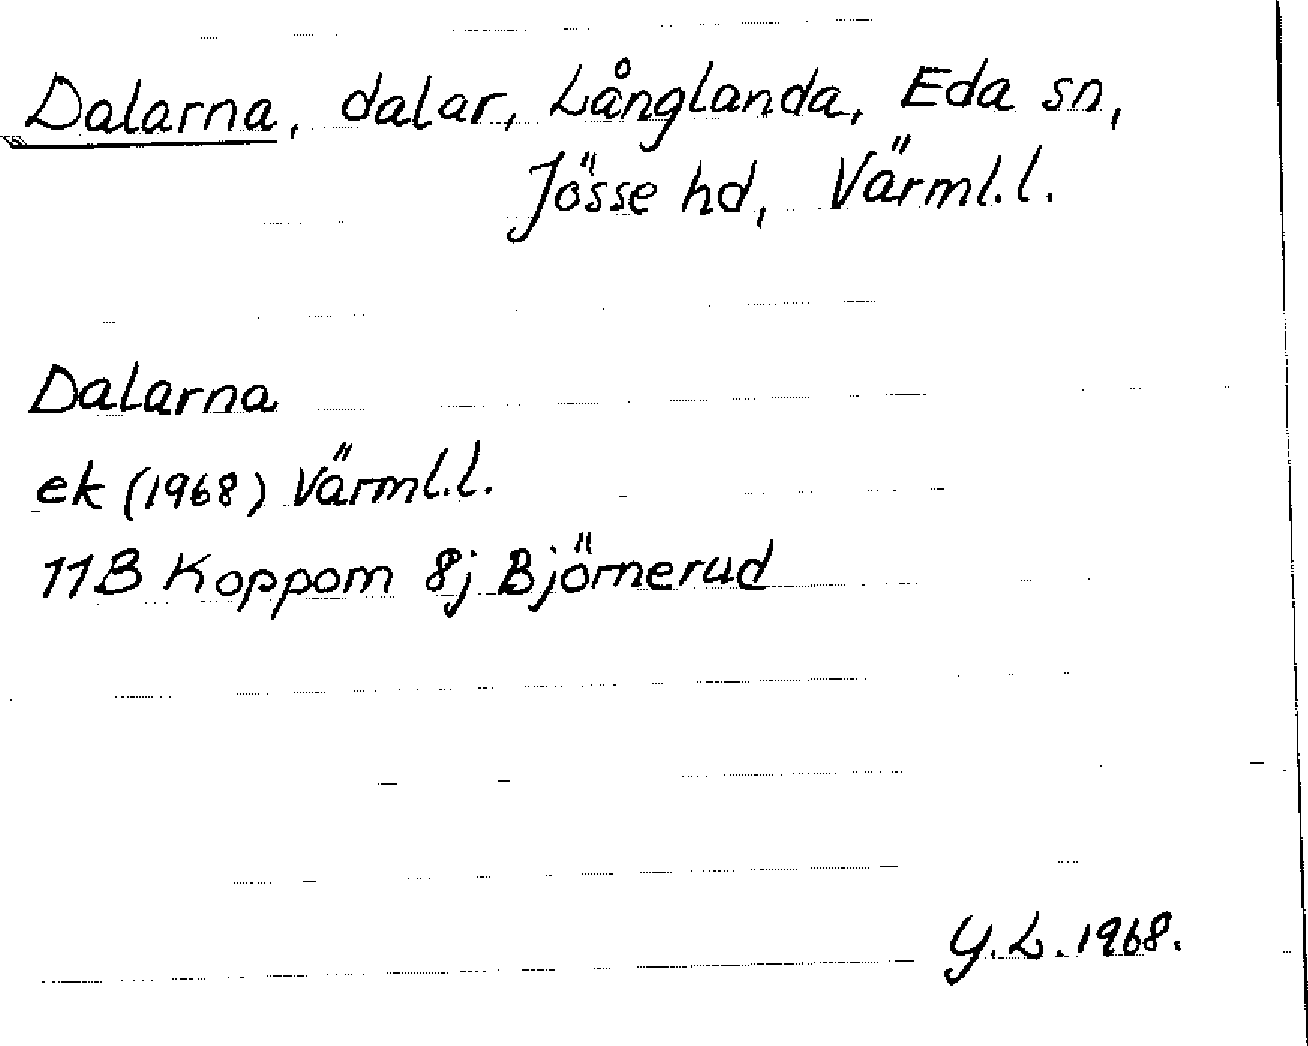 Dalarna, dalar, Långlanda, Eda sn,
Jösse hd, Värml.l.
Dalarna
ek (1968) Värml.l.
11B Koppom 8j Björnerud
Y.L. 1968.